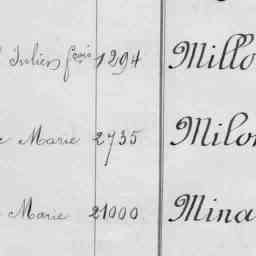 Julien fçois 1294 Millo
Marie 2735 Milon
Marie 21000 Mina